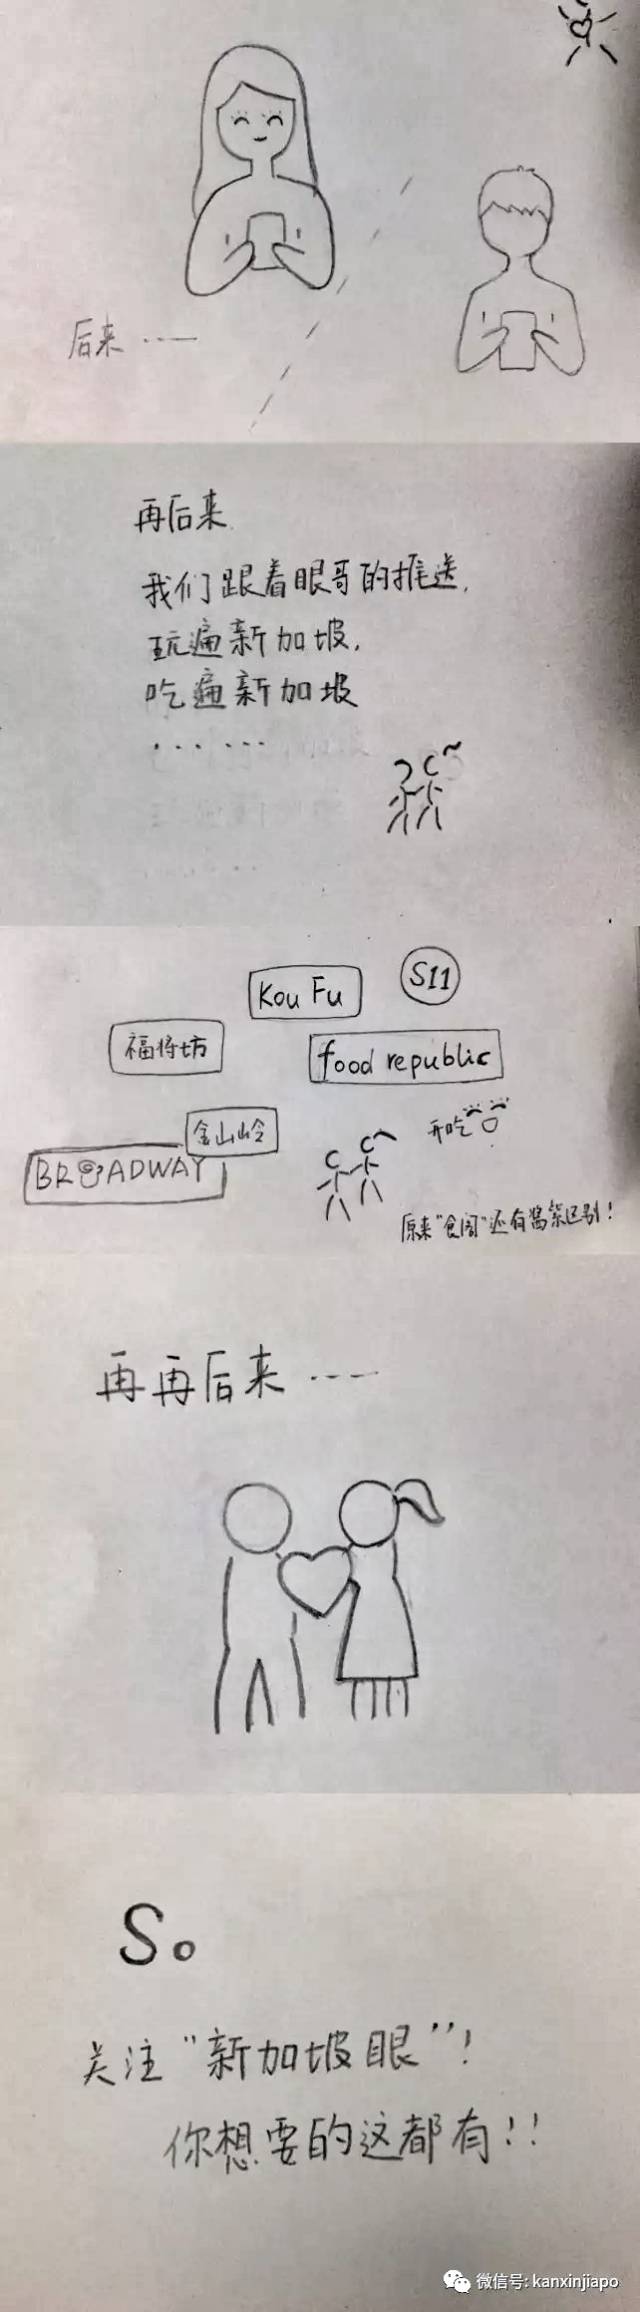 后来……
再后来
我们跟着眼哥的推送,
玩遍新加坡,
吃遍新加坡
……
Kou Fu
S11
福将坊
food republic
金山岭
BROADWAY
开吃
原来“食阁”还有酱紫区别！
再再后来……
So
关注“新加坡眼”！
你想要的这都有！！
微信号: kanxinjiapo